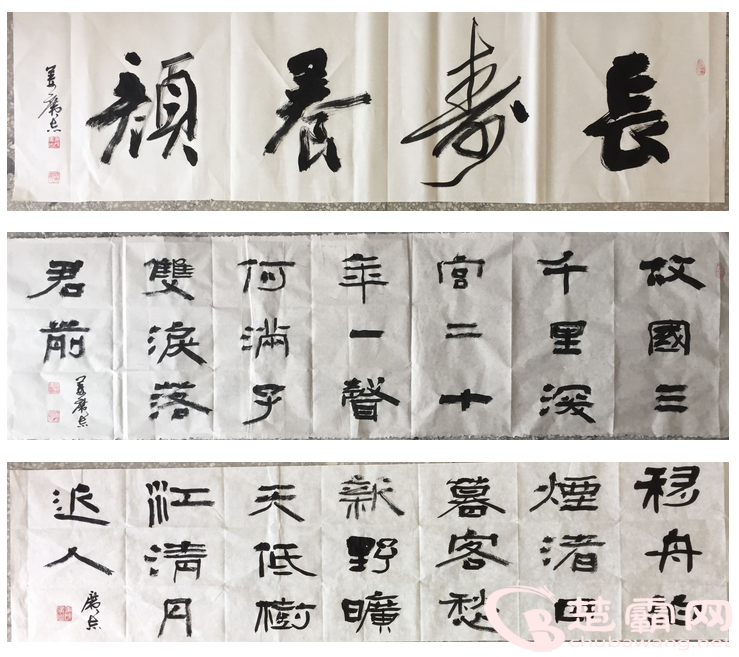 長寿養顔
故國三
千里深
宮二十
年一聲
何滿子
雙淚落
君前
移舟泊
煙渚日
暮客愁
新野曠
天低樹
江清月
近人
楚霸网
chubawang.net